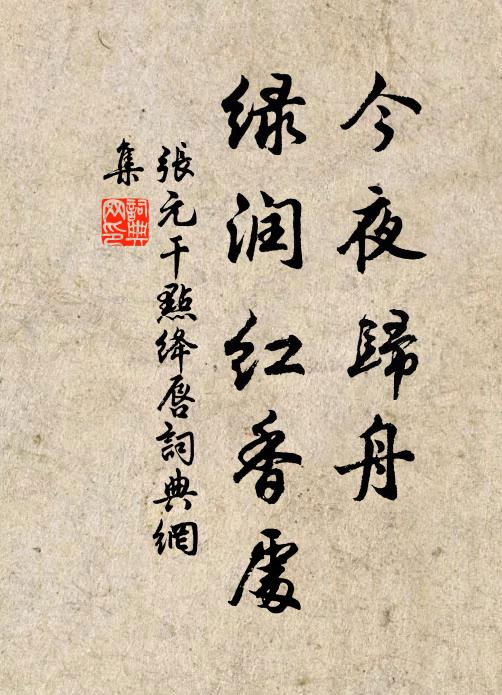 今夜歸舟
綠润紅香處
張元干點绛唇詞典網
集
詞典
网印